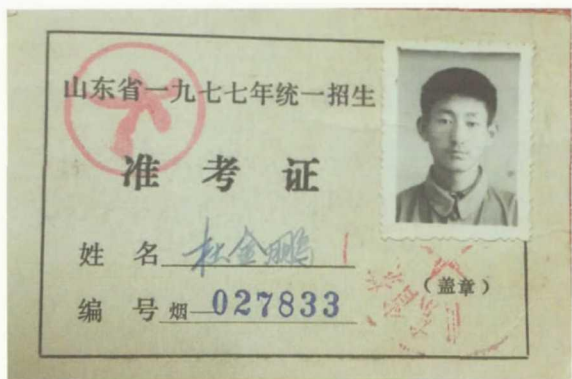 山东省一九七七年统一招生
准考证
姓名 杜金鹏
编号 烟—027833
（盖章）